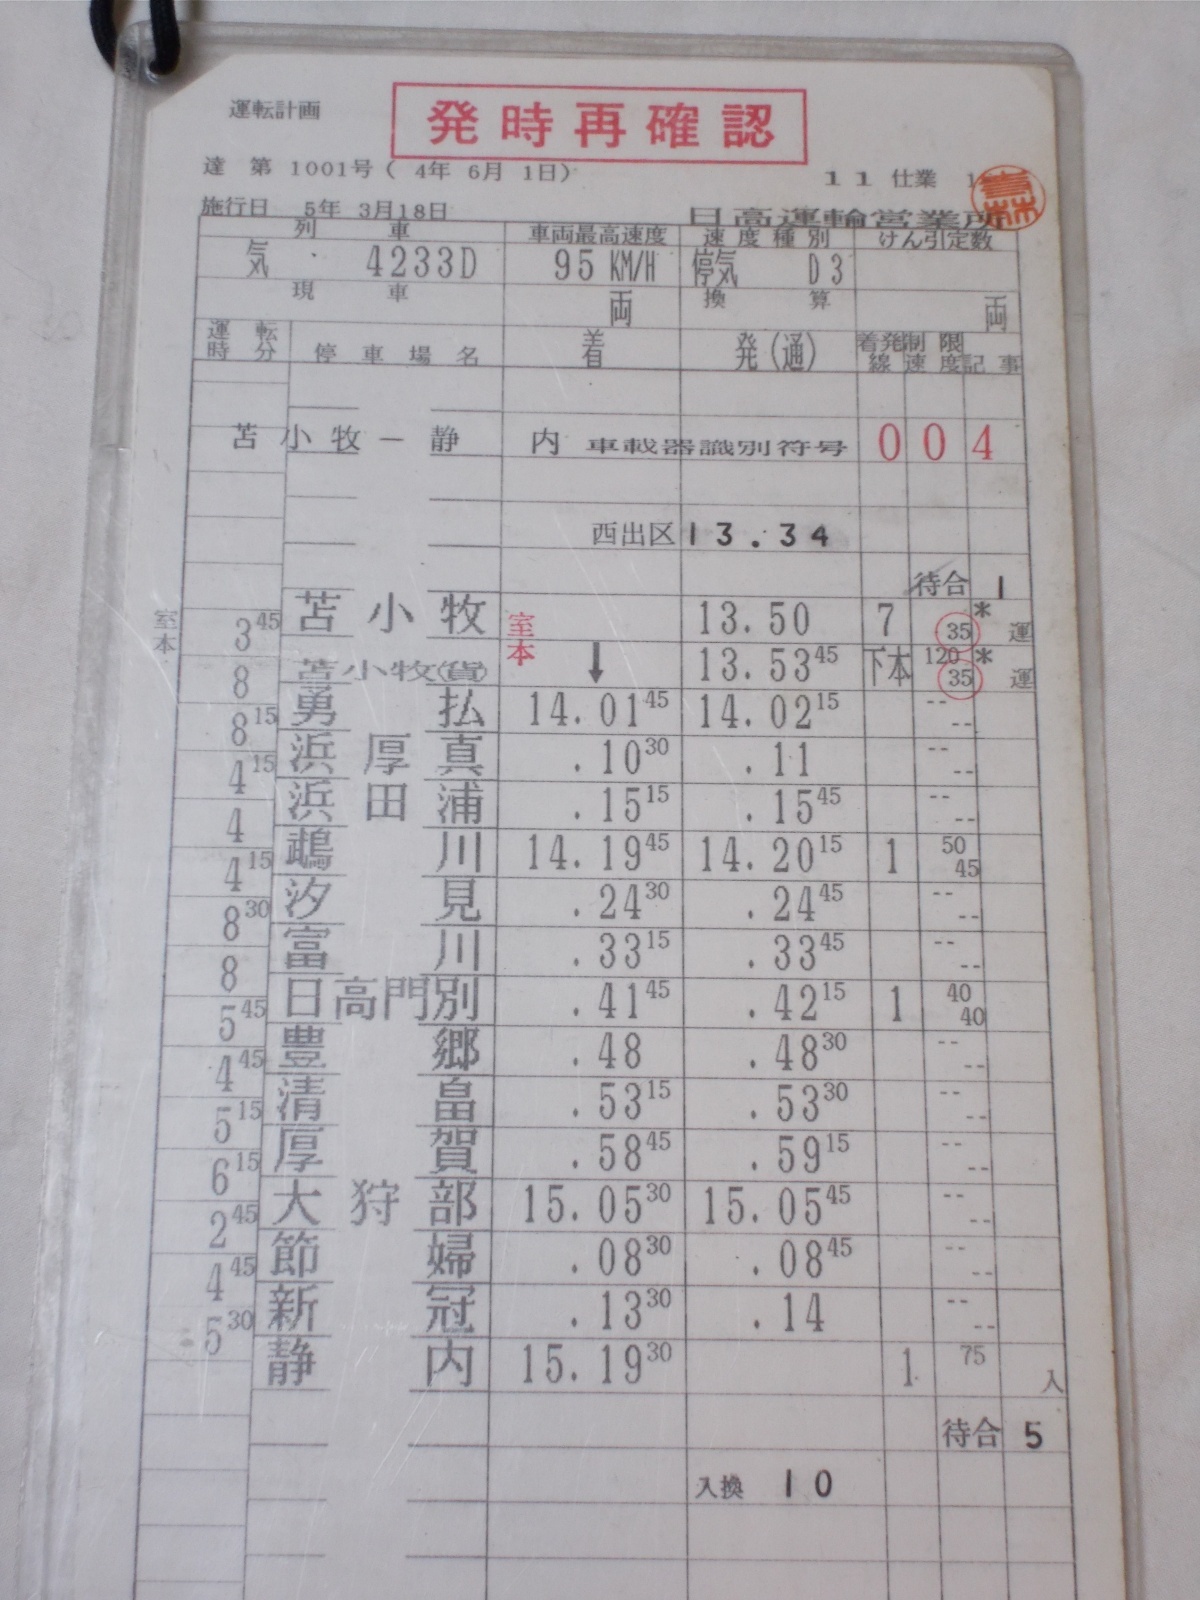 運転計画
発時再確認
達 第 1001号( 4年 6月 1日)
11 仕業
施行日 5年 3月18日
日高運輸営業所
列 車 車両最高速度 速度種別 けん引定数
気 4233D 95 KM/H 停気 D3
現 車 両 換 算 両
運転時分 停車場名 着 発(通) 着発線 制限速度 記事
苫小牧―静内 車載器識別符号 004
西出区 13.34
待合 1
室本 3 45 苫小牧 室本 13.50 7 35 * 運
8 苫小牧(貨) ↓ 13.53 45 下本 120 35 * 運
8 15 勇払 14.01 45 14.02 15 -- --
4 15 浜厚真 .10 30 .11 -- --
4 浜田浦 .15 15 .15 45 -- --
4 15 鵡川 14.19 45 14.20 15 1 50 45
8 30 汐見 .24 30 .24 45 -- --
8 富川 .33 15 .33 45 -- --
5 45 日高門別 .41 45 .42 15 1 40 40
4 45 豊郷 .48 .48 30 -- --
5 15 清畠 .53 15 .53 30 -- --
6 15 厚賀 .58 45 .59 15 -- --
2 45 大狩部 15.05 30 15.05 45 -- --
4 45 節婦 .08 30 .08 45 -- --
5 30 新冠 .13 30 .14 -- --
静内 15.19 30 1 75 入
待合 5
入換 10